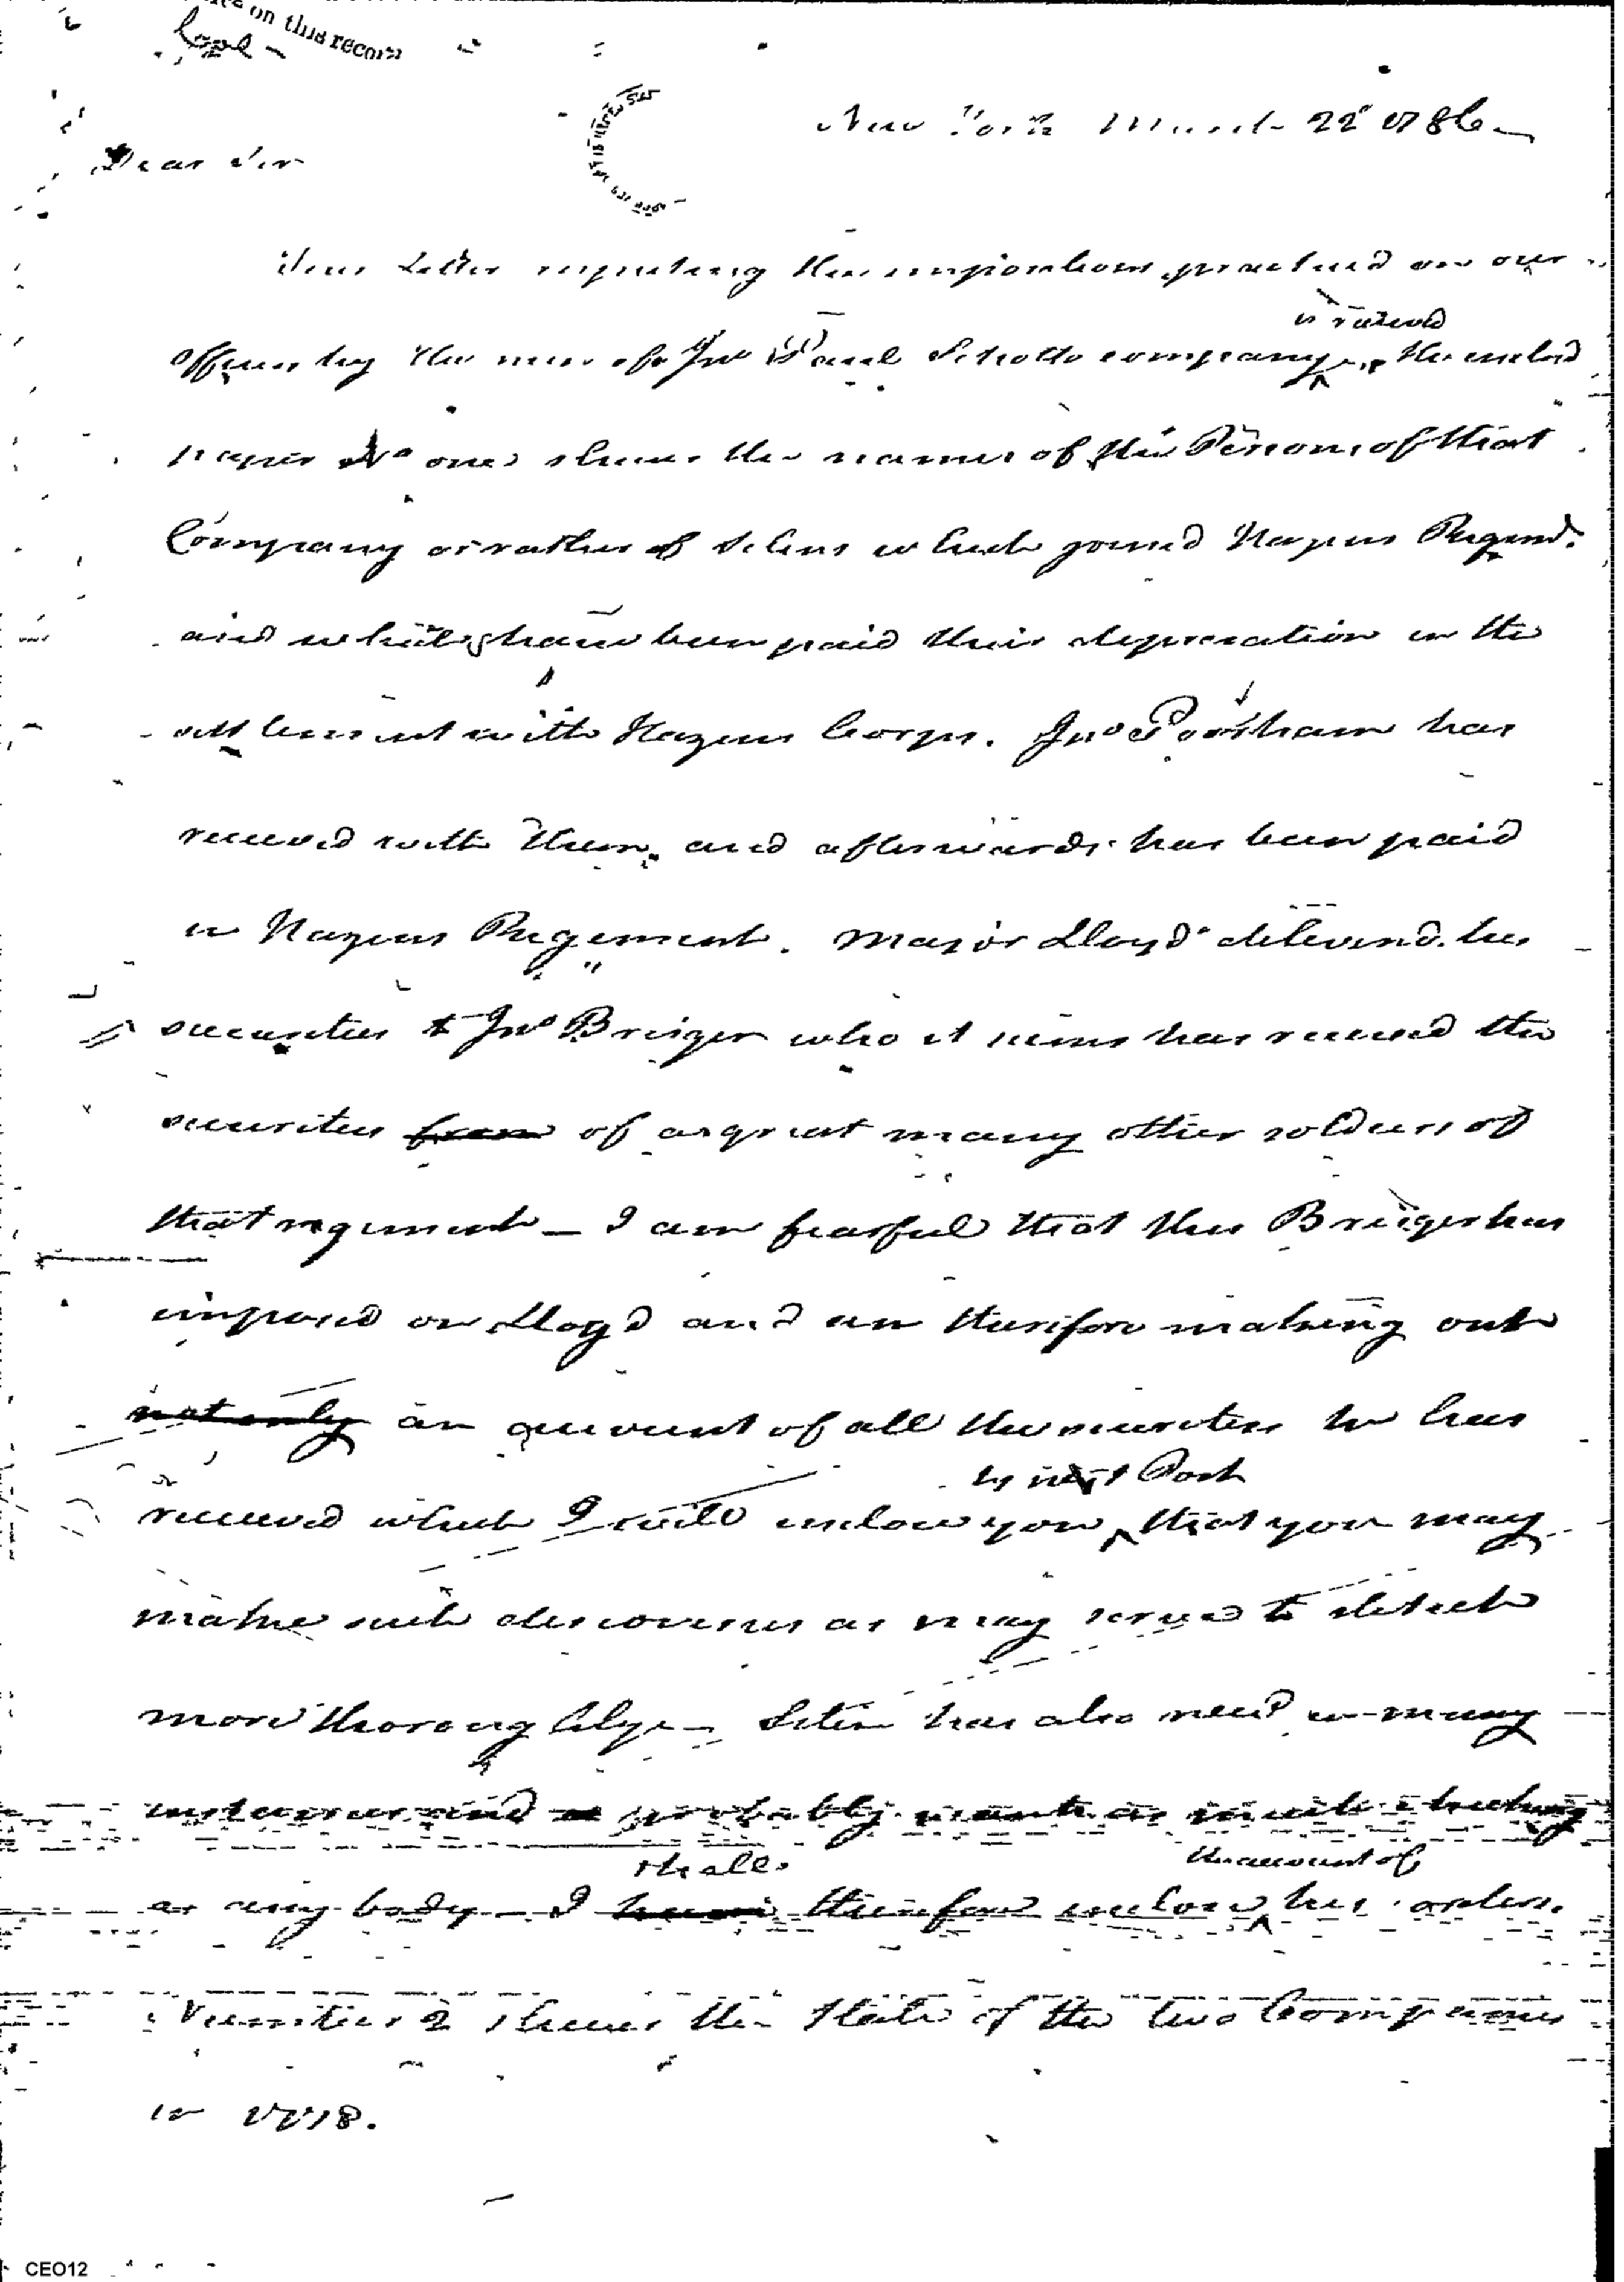 on this record
Copy
New York March 22d 1786
Dear Sir
Your Letter respecting the impositions practised on our
is received
officers by the men of Jno Paul Schotts company the enclosd
paper No one shews the names of the Persons of that
Company or rather of Selins which joined Hazens Regemt.
and which have been paid their depreciation in the
settlement with Hazens Corps. Jno has
received with them, and afterwards has been paid
in Hazens Regement. Major Lloyd deliverd his
securities to Jno Breiger who it seems has received the
securities from of a great many other soldiers of
that regiment — I am fearful that this Breiger has
imposed on Lloyd and am therefore making out
not only an account of all the securities he has
by next Post
received which I will enclose you that you may
make such discoveries as may serve to detect
more thoroughly — has also in many
instances and probably as much
I shall the account of
as any body — I have therefore enclose his orders.
2 shews the State of the two Companies
in 1778.
CEO12